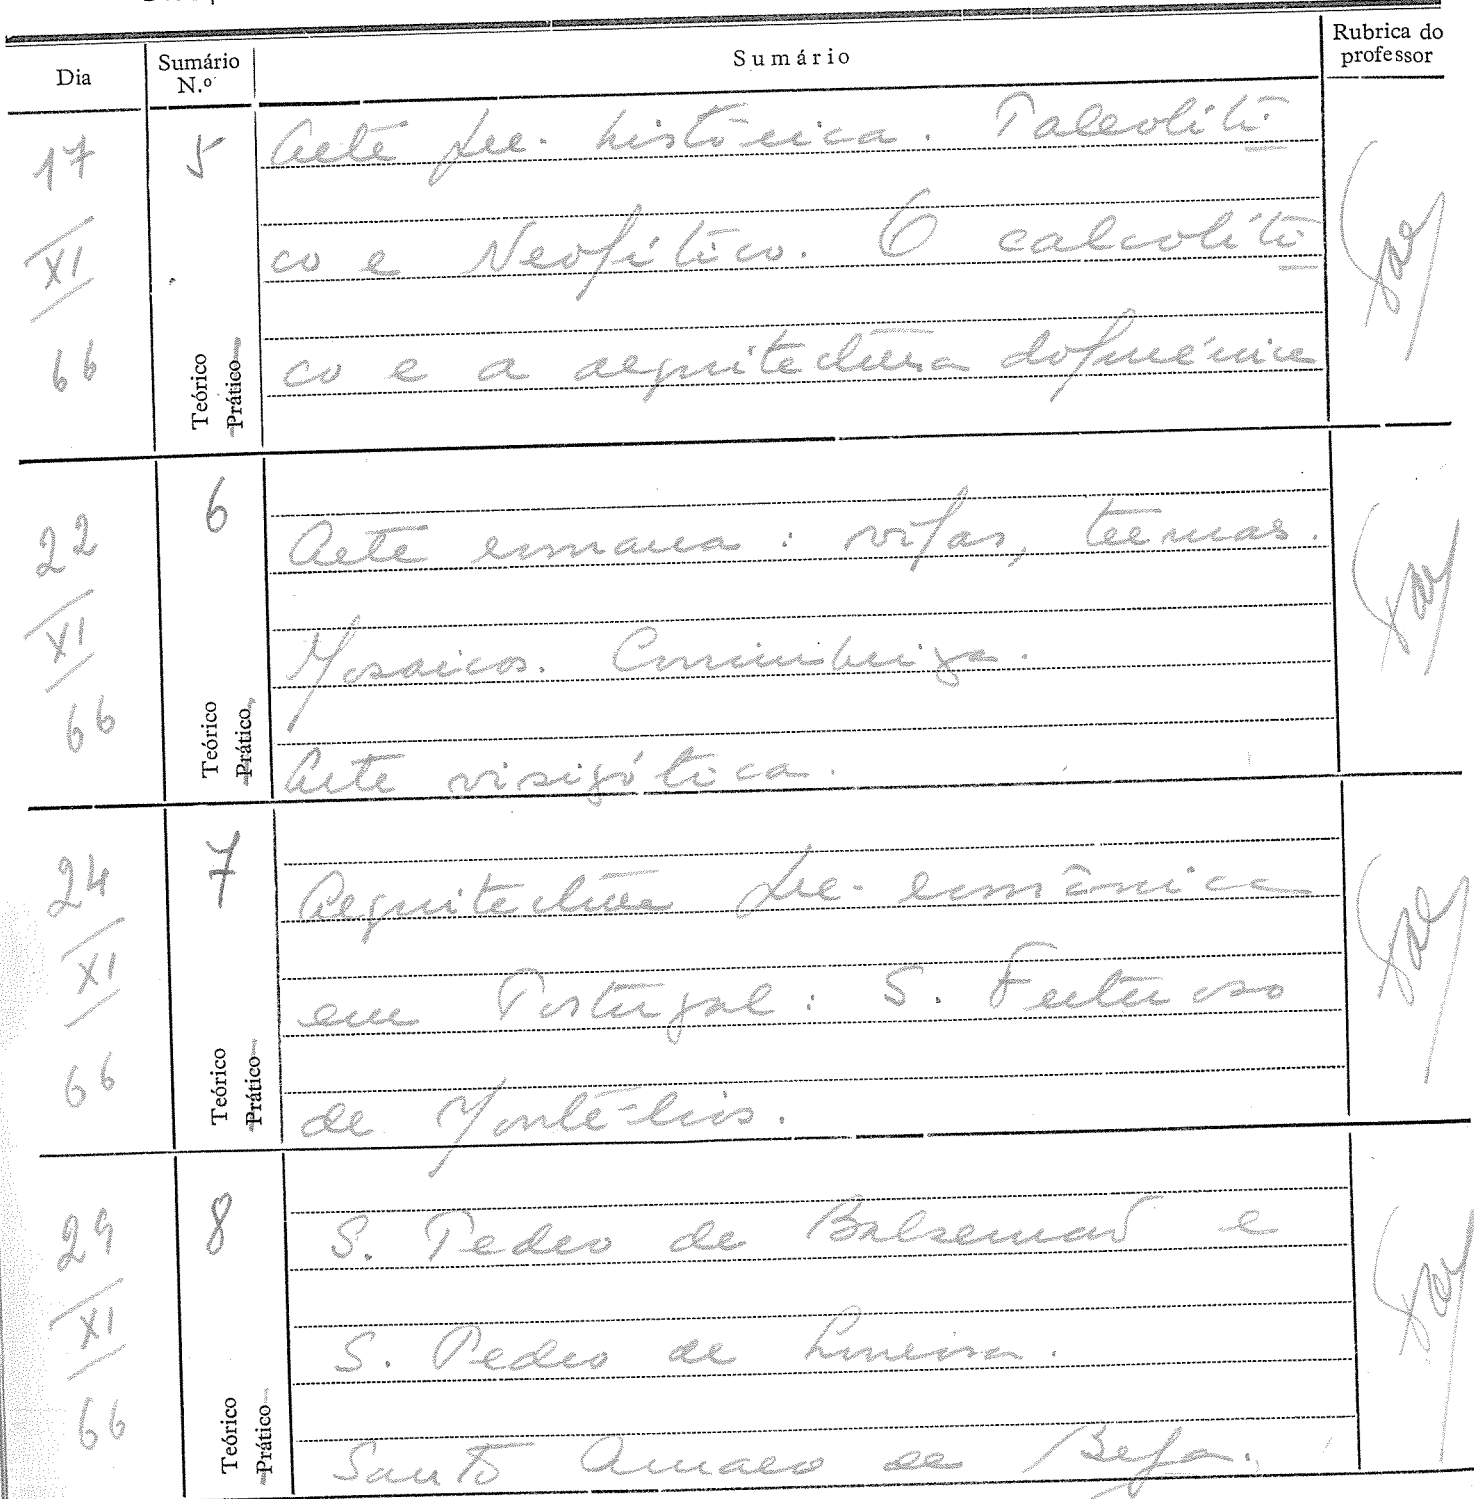 Dia
Sumário
N.º
Sumário
Rubrica do
professor
17
XI
66
5
Teórico
Prático
Arte pre-histórica. Paleolíti
co e Neolítico. O calcolíti
co e a arquitectura dolménica
22
XI
66
6
Teórico
Prático
Arte romana: vilas, termas.
Mosaicos. Conimbriga.
Arte visigótica.
24
XI
66
7
Teórico
Prático
Arquitectura pre-românica
em Portugal: S. Frutuoso
de Montélios.
29
XI
66
8
Teórico
Prático
S. Pedro de Balsemão e
S. Pedro de Lourosa.
Santo Amaro de Beja.